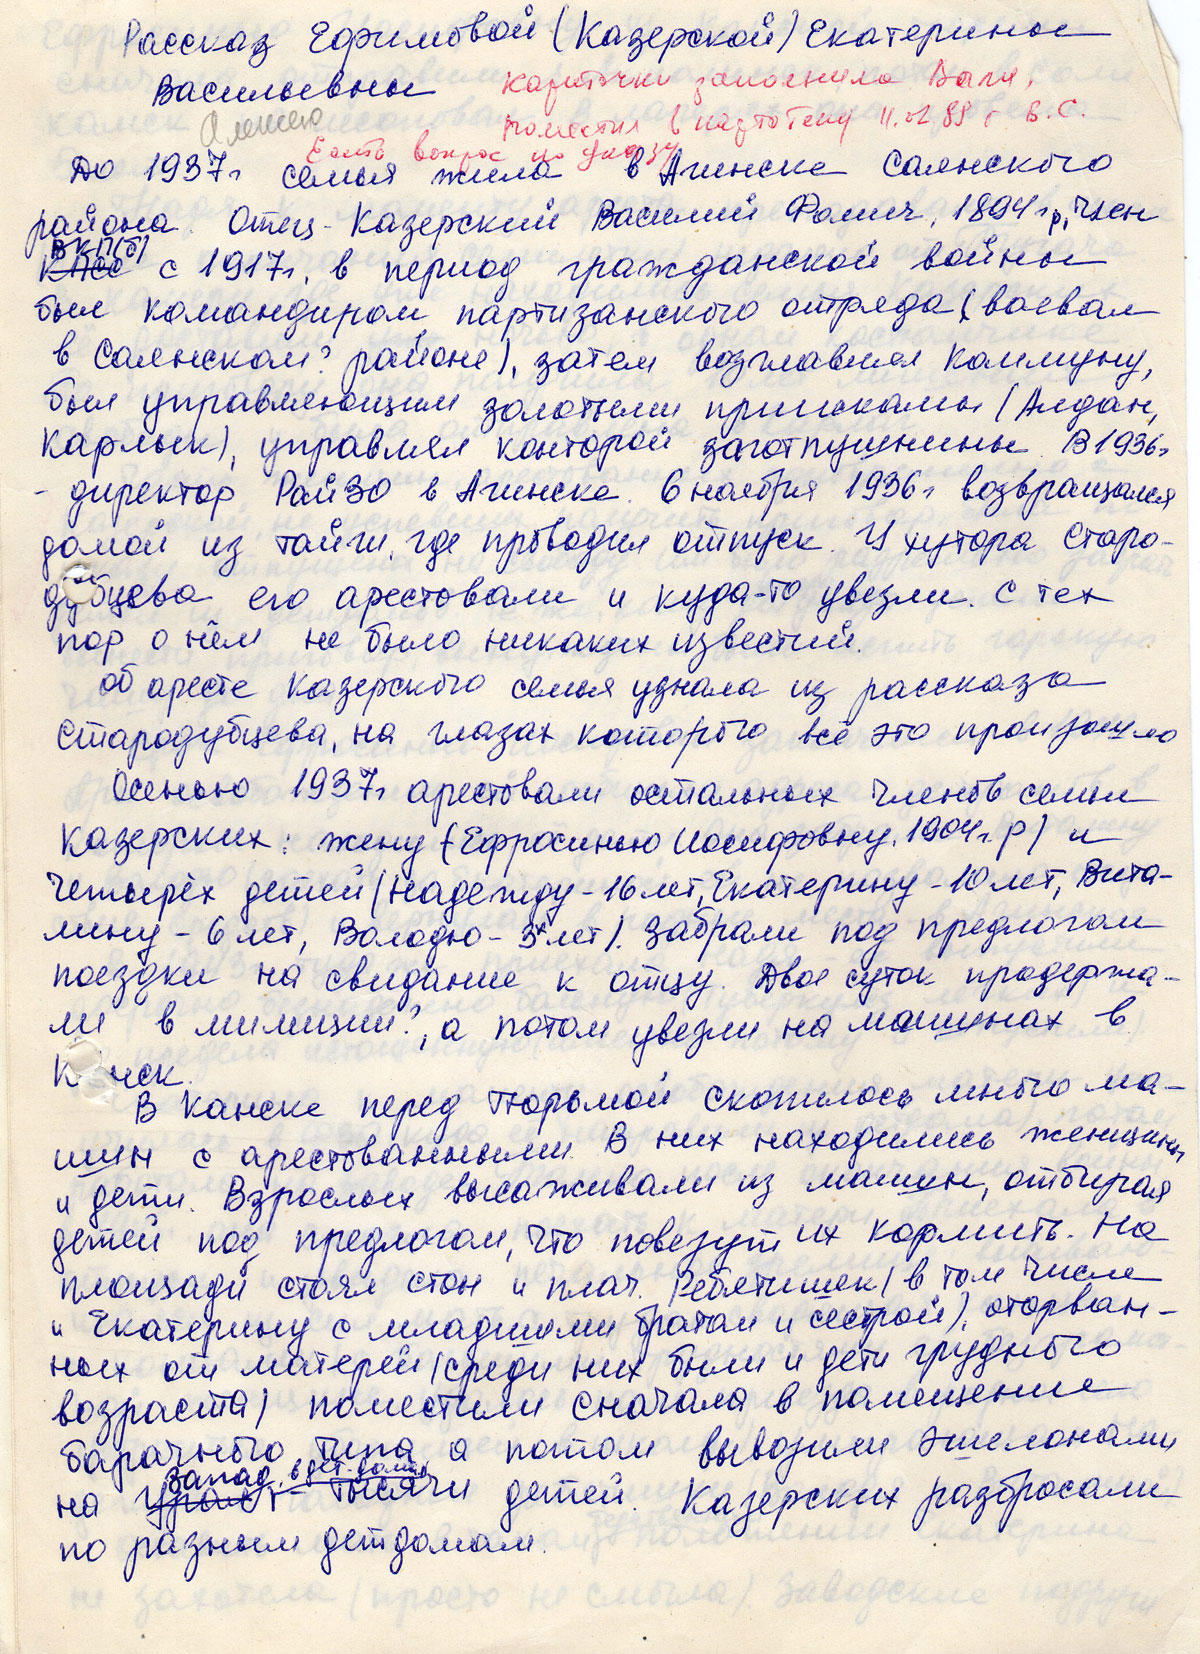 Рассказ Ефимовой (Казерской) Екатерины
Васильевны
Карточки заполнила Валя,
поместил в картотеку 11.02.89 г В.С.
Алексею
Есть вопрос по указу
До 1937г семья жила в Агинске Саянского
района. Отец - Казерский Василий Фомич, 1894г.р, член
ВКП(б)
КПСС с 1917г, в период гражданской войны
был командиром партизанского отряда (воевал
в Саянском? районе), затем возглавлял коммуну,
был управляющим золотыми приисками (Алдан,
Карлык), управлял конторой заготпушнины. В 1936г
- директор РайЗО в Агинске. 6 ноября 1936г возвращался
домой из тайги, где проводил отпуск. У хутора Старо-
дубцева его арестовали и куда-то увезли. С тех
пор о нём не было никаких известий.
Об аресте Казерского семья узнала из рассказа
Стародубцева, на глазах которого всё это произошло
Осенью 1937г арестовали остальных членов семьи
Казерских: жену (Ефросинью Иосифовну, 1904г.р) и
четырёх детей (Надежду - 16 лет, Екатерину - 10 лет, Вита-
лину - 6 лет, Володю - 3х лет). Забрали под предлогом
поездки на свидание к отцу. Двое суток продержа-
ли в милиции?, а потом увезли на машинах в
Канск.
В Канске перед тюрьмой скопилось много ма-
шин с арестованными. В них находились женщины
и дети. Взрослых высаживали из машин, отбирая
детей под предлогом, что повезут их кормить. На
площади стоял стон и плач. Ребятишек (в том числе
и Екатерину с младшими братом и сестрой), оторван-
ных от матерей (среди них были и дети грудного
возраста) поместили сначала в помещение
барачного типа а потом вывозили эшелонами
Запад, в дет. дома
на Урал - тысячи детей. Казерских разбросали
по разным детдомам.